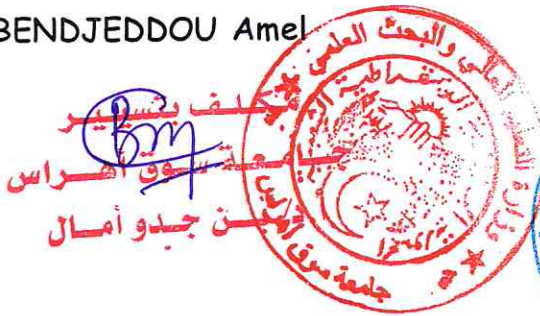 BENDJEDDOU Amel
مكلف بتسيير
جامعة سوق أهراس
بن جدو أمال
العالي والبحث العلمي
جامعة سوق أهراس